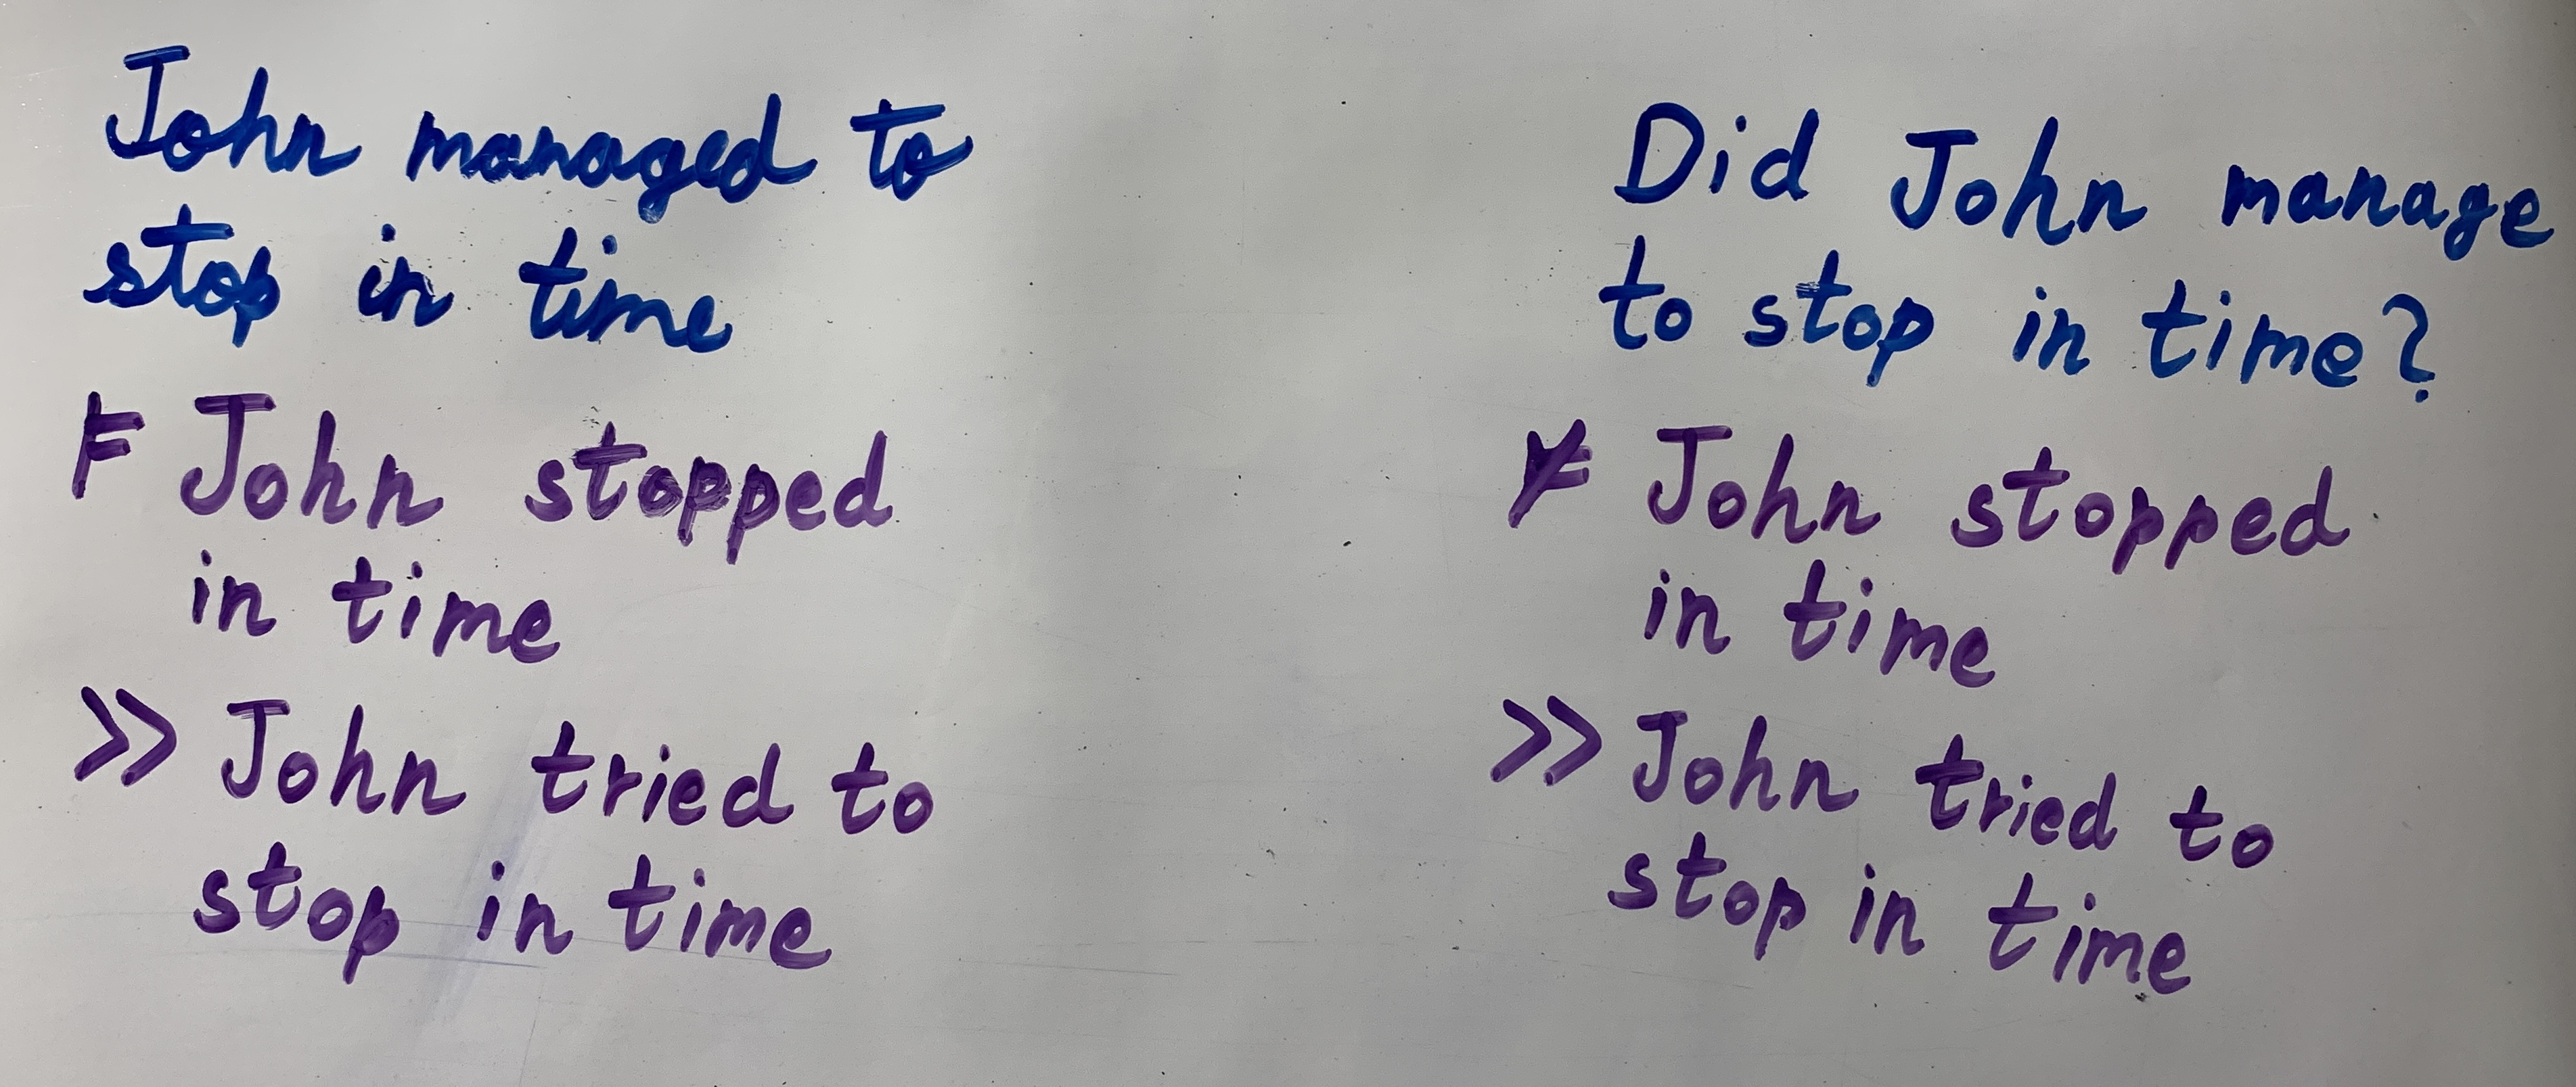 John managed to
stop in time
⊨ John stopped
in time
>> John tried to
stop in time
Did John manage
to stop in time?
⊭ John stopped
in time
>> John tried to
stop in time